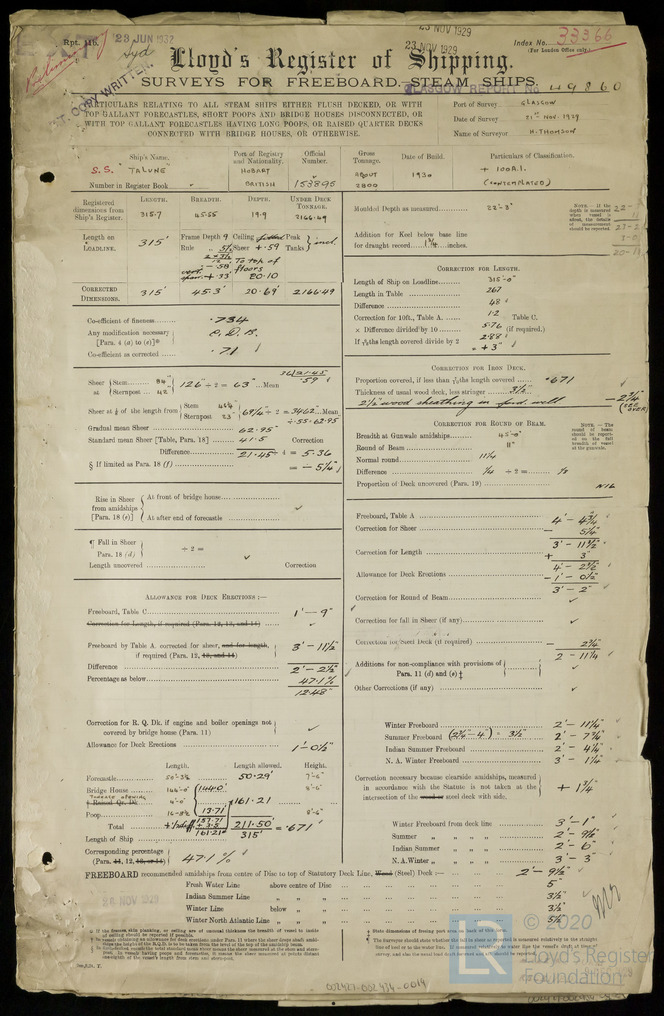 Rpt. 11b.
23 JUN 1932
Syd
23 NOV 1929
23 NOV 1929
Index No. 33366
(For London Office only.)
Lloyd's Register of Shipping.
SURVEYS FOR FREEBOARD.—STEAM SHIPS.
GLASGOW REPORT No 49860
PARTICULARS RELATING TO ALL STEAM SHIPS EITHER FLUSH DECKED, OR WITH
TOP GALLANT FORECASTLES, SHORT POOPS AND BRIDGE HOUSES DISCONNECTED, OR
WITH TOP GALLANT FORECASTLES HAVING LONG POOPS, OR RAISED QUARTER DECKS
CONNECTED WITH BRIDGE HOUSES, OR OTHERWISE.
Port of Survey GLASGOW
Date of Survey 21st NOV. 1929
Name of Surveyor H. THOMSON
Ship's Name. Port of Registry and Nationality. Official Number. Gross Tonnage. Date of Build. Particulars of Classification.
S.S. "TALUNE" HOBART BRITISH 153895 ABOUT 2800 1930 + 100A.1. (CONTEMPLATED)
Number in Register Book
LENGTH. BREADTH. DEPTH. UNDER DECK TONNAGE.
Registered dimensions from Ship's Register. 315.7 45.55 19.9 2166.49
Length on LOADLINE. 315' Frame Depth 9 Ceiling Peak
Rule Sheer + .59 Tanks } incl.
To top of
floors
+ .33 20.10
CORRECTED DIMENSIONS. 315' 45.3' 20.69' 2166.49
Co-efficient of fineness .734
Any modification necessary [Para. 4 (a) to (e)]*
Co-efficient as corrected .71
Sheer at { Stem 84" Sternpost 42" } 126" ÷ 2 = 63" Mean
.59
Sheer at 1/8 of the length from { Stem Sternpost 23" } 69¼ ÷ 2 = 34.62 Mean
÷ .55 = 62.95
Gradual mean Sheer 62.95"
Standard mean Sheer [Table, Para. 18] 41.5 Correction
Difference 21.45 ÷ 4 = 5.36
§ If limited as Para. 18 (f) = - 5¼"
Rise in Sheer from amidships [Para. 18 (e)] { At front of bridge house
At after end of forecastle
¶ Fall in Sheer Para. 18 (d) } ÷ 2 =
Length uncovered Correction
ALLOWANCE FOR DECK ERECTIONS:—
Freeboard, Table C 1' - 9"
Correction for Length, if required (Para. 12, 13, and 14)
Freeboard by Table A. corrected for sheer, and for length, if required (Para. 12, 13, and 14) 3' - 11½"
Difference 2' - 2½"
Percentage as below 47.1%
12.48"
Correction for R. Q. Dk. if engine and boiler openings not covered by bridge house (Para. 11)
Allowance for Deck Erections 1' - 0½"
Length. Length allowed. Height.
Forecastle 50'-3½ 50.29' 7'-6"
Bridge House 144'-0" 144.0'
Raised Qr. Dk. 4'-0" 161.21
Poop 13.71
Total 157.71 + 3.5 161.21 211.50'
Length of Ship 315' = .671
Corresponding percentage (Para. 11, 12, 13, or 14) } 47.1%
Moulded Depth as measured 22'-3"
Addition for Keel below base line for draught record 1¾ inches.
NOTE.—If the depth is measured when vessel is afloat, the details of measurement should be reported.
CORRECTION FOR LENGTH.
Length of Ship on Loadline 315'-0"
Length in Table 267
Difference 48
Correction for 10ft., Table A. 1.2 Table C.
× Difference divided by 10 5.76 (if required.)
If 6/10ths length covered divide by 2 2.88
= + 3"
CORRECTION FOR IRON DECK.
Proportion covered, if less than 7/10ths length covered .671
Thickness of usual wood deck, less stringer 3½"
2½" wood sheathing in ford. well - 2¾" (SEE OVER)
CORRECTION FOR ROUND OF BEAM.
Breadth at Gunwale amidships 45'-0"
Round of Beam 11"
Normal round 11¼
Difference ¼ ÷ 2 = ⅛
Proportion of Deck uncovered (Para. 19) NIL
NOTE.—The round of beam should be reported on the full breadth of vessel at the gunwale.
Freeboard, Table A 4' - 4¾"
Correction for Sheer - 5¼"
3' - 11½"
Correction for Length + 3"
4' - 2½"
Allowance for Deck Erections - 1' - 0½"
3' - 2"
Correction for Round of Beam
Correction for fall in Sheer (if any)
Correction for Steel Deck (if required) 2¾"
2 - 11¼"
Additions for non-compliance with provisions of Para. 11 (d) and (e) ‡
Other Corrections (if any)
Winter Freeboard 2' - 11¼"
Summer Freeboard 2' - 7¾"
Indian Summer Freeboard 2' - 4¼"
N. A. Winter Freeboard 3' - 1¼"
Correction necessary because clearside amidships, measured in accordance with the Statute is not taken at the intersection of the wood or steel deck with side. + 1¾"
Winter Freeboard from deck line 3' - 1"
Summer „ „ „ „ 2' - 9½"
Indian Summer „ „ „ 2' - 6"
N. A. Winter „ „ „ 3' - 3"
FREEBOARD recommended amidships from centre of Disc to top of Statutory Deck Line, Wood (Steel) Deck :— 2' - 9½"
Fresh Water Line above centre of Disc 5"
Indian Summer Line „ „ „ 3½"
Winter Line below „ „ 3½"
Winter North Atlantic Line „ „ „ 5½"
© 2020
Lloyd's Register
Foundation
002427-002434-0019